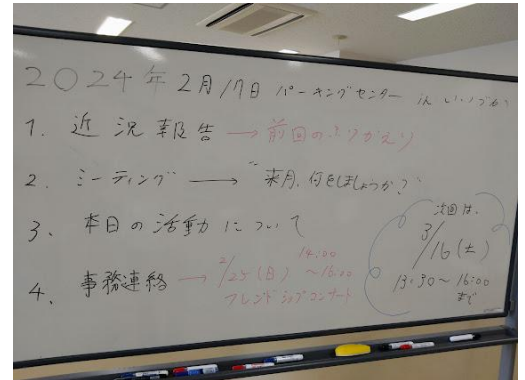 2024年2月17日 パーキングセンター in いいづか
1. 近況報告 → 前回のふりかえり
2. ミーティング → "来月、何をしましょうか?"
3. 本日の活動について
4. 事務連絡 → 2/25(日) 14:00~16:00
フレンドシップコンサート
次回は、
3/16(土)
13:30~16:00
まで